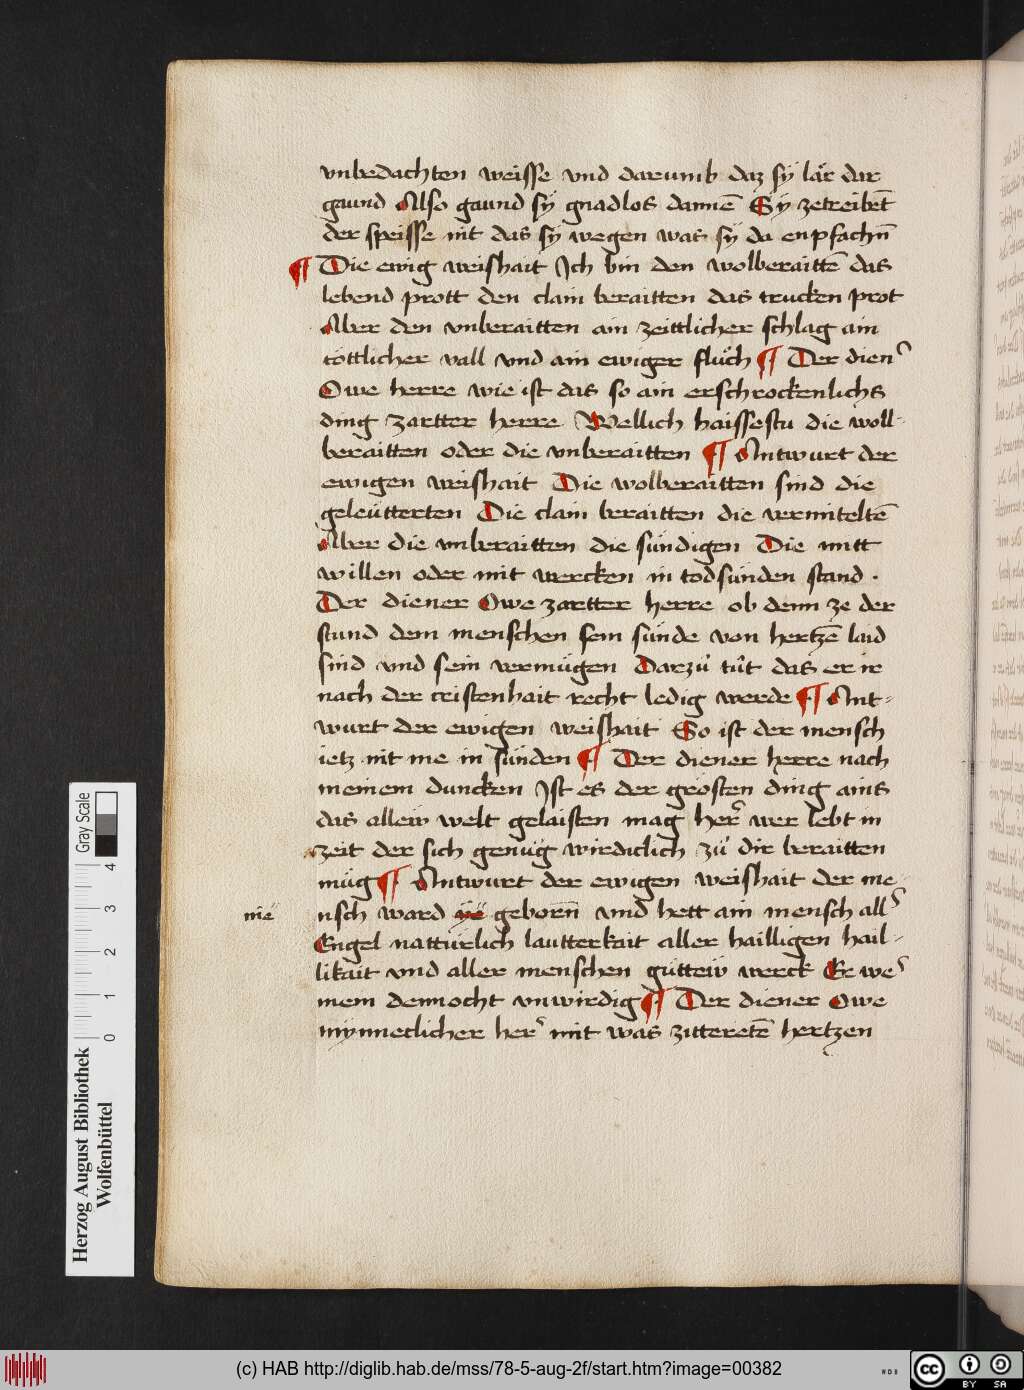 vnbedachten weisse vnd darumb daz sÿ lär dar
gaund Also gaund sÿ gnadlos dannē Sÿ zetreibēt
der speisse nit das sÿ wegen was sÿ da enpfachn̄
¶ Die ewig weishait Ich bin den wolberaittē das
lebend prott den clain beraitten das trucken prot
Aber den vnberaitten ain zeittlicher schlag ain
töttlicher vall vnd ain ewiger flůch ¶ Der dien͛
Owe herre wie ist das so ain erschrockenlichs
ding zartter herre Wellich haissestu die woll-
beraitten oder die vnberaitten ¶ Antwurt der
ewigen weishait Die wolberaitten sind die
geleütterten Die clain beraitten die vermiteltē
Aber die vnberaitten die sündigen Die mitt
willen oder mit wercken in todsünden stand ·
Der diener Owe zartter herre ob denn ze der
stund dem menschen sein sünde von hertzē laid
sind vnd sein vermügen Darzů tůt das er ir
nach der cristenhait recht ledig werde ¶ Ant-
wurt der ewigen weishait So ist der mensch
ietz nit me in sünden ¶ Der diener herre nach
meinem duncken Ist es der grösten ding ains
das allew̄ welt gelaisten mag her͛ wer lebt in
zeit der sich genůg wirdiclich zů dir beraitten
müg ¶ Antwurt der ewigen weishait der me-
nie nsch ward geborn̄ vnd hett ain mensch all͛
Engel natturlich lautterkait aller hailligen hail-
likait vnd aller menschen güttew̄ werck Er we͛
mem dennocht vnwirdig ¶ Der diener Owe
mÿnneclicher her͛ mit was zitteretē hertzen
Herzog August Bibliothek
Wolfenbüttel
0 1 2 3 4
Gray Scale
(c) HAB http://diglib.hab.de/mss/78-5-aug-2f/start.htm?image=00382
WDB
cc BY SA